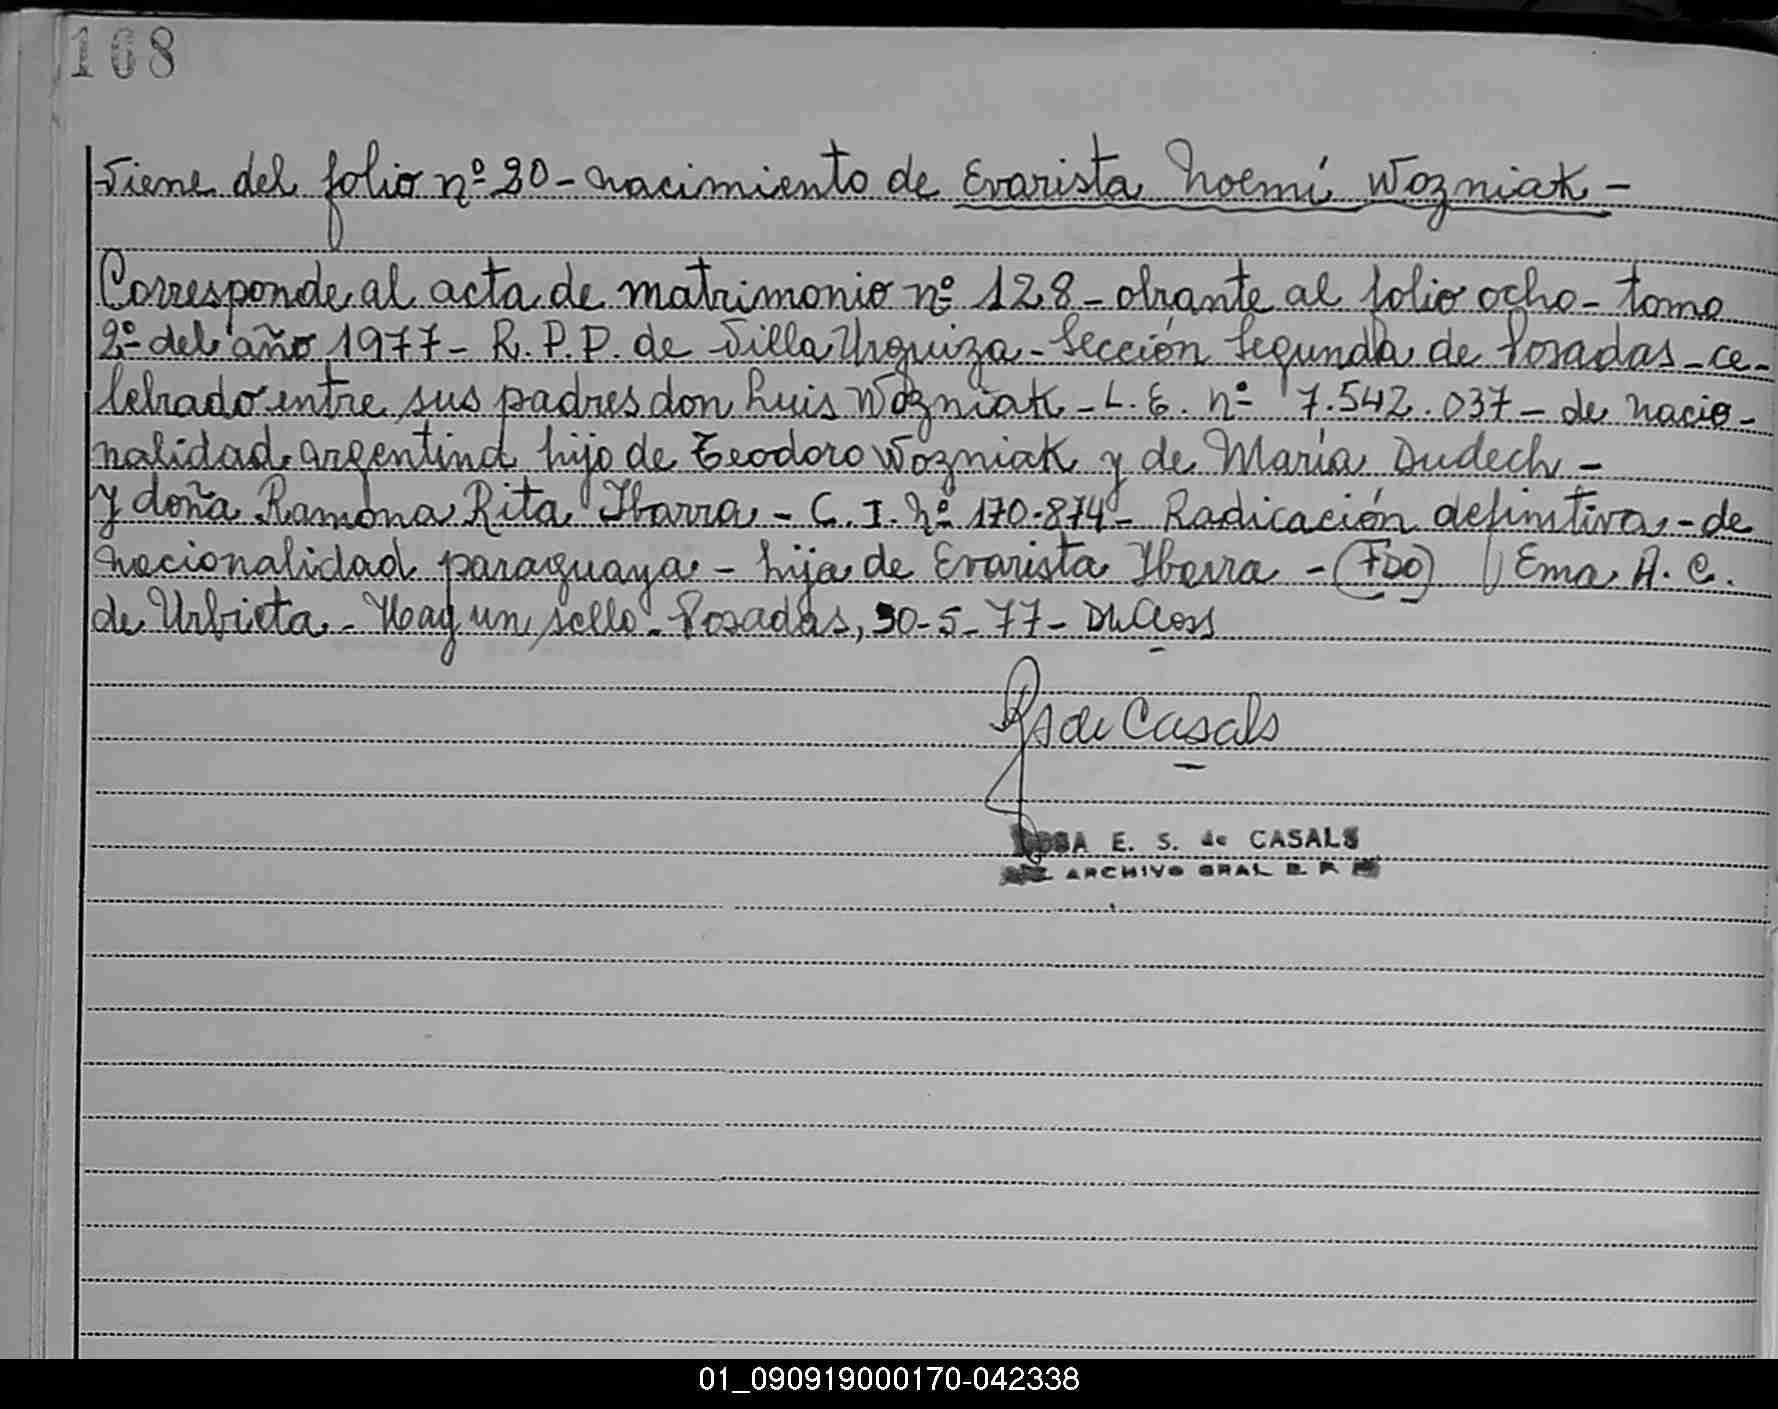 168
Viene del folio nº 20 - nacimiento de Evarista Noemí Wozniak -
Corresponde al acta de matrimonio nº 128 - obrante al folio ocho - tomo
2º del año 1977 - R. P. P. de Villa Urquiza - Sección Segunda de Posadas - ce-
lebrado entre sus padres don Luis Wozniak - L. E. nº 7.542.037 - de nacio-
nalidad argentina hijo de Teodoro Wozniak y de María Dudech -
y doña Ramona Rita Ibarra - C. I. Nº 170.874 - Radicación definitiva, - de
nacionalidad paraguaya - hija de Evarista Ibarra - (FDO) Ema A. C.
de Urbieta - Hay un sello - Posadas, 30-5-77 -
de Casals
E. S. de CASALS
ARCHIVO GRAL R. P.
01_090919000170-042338